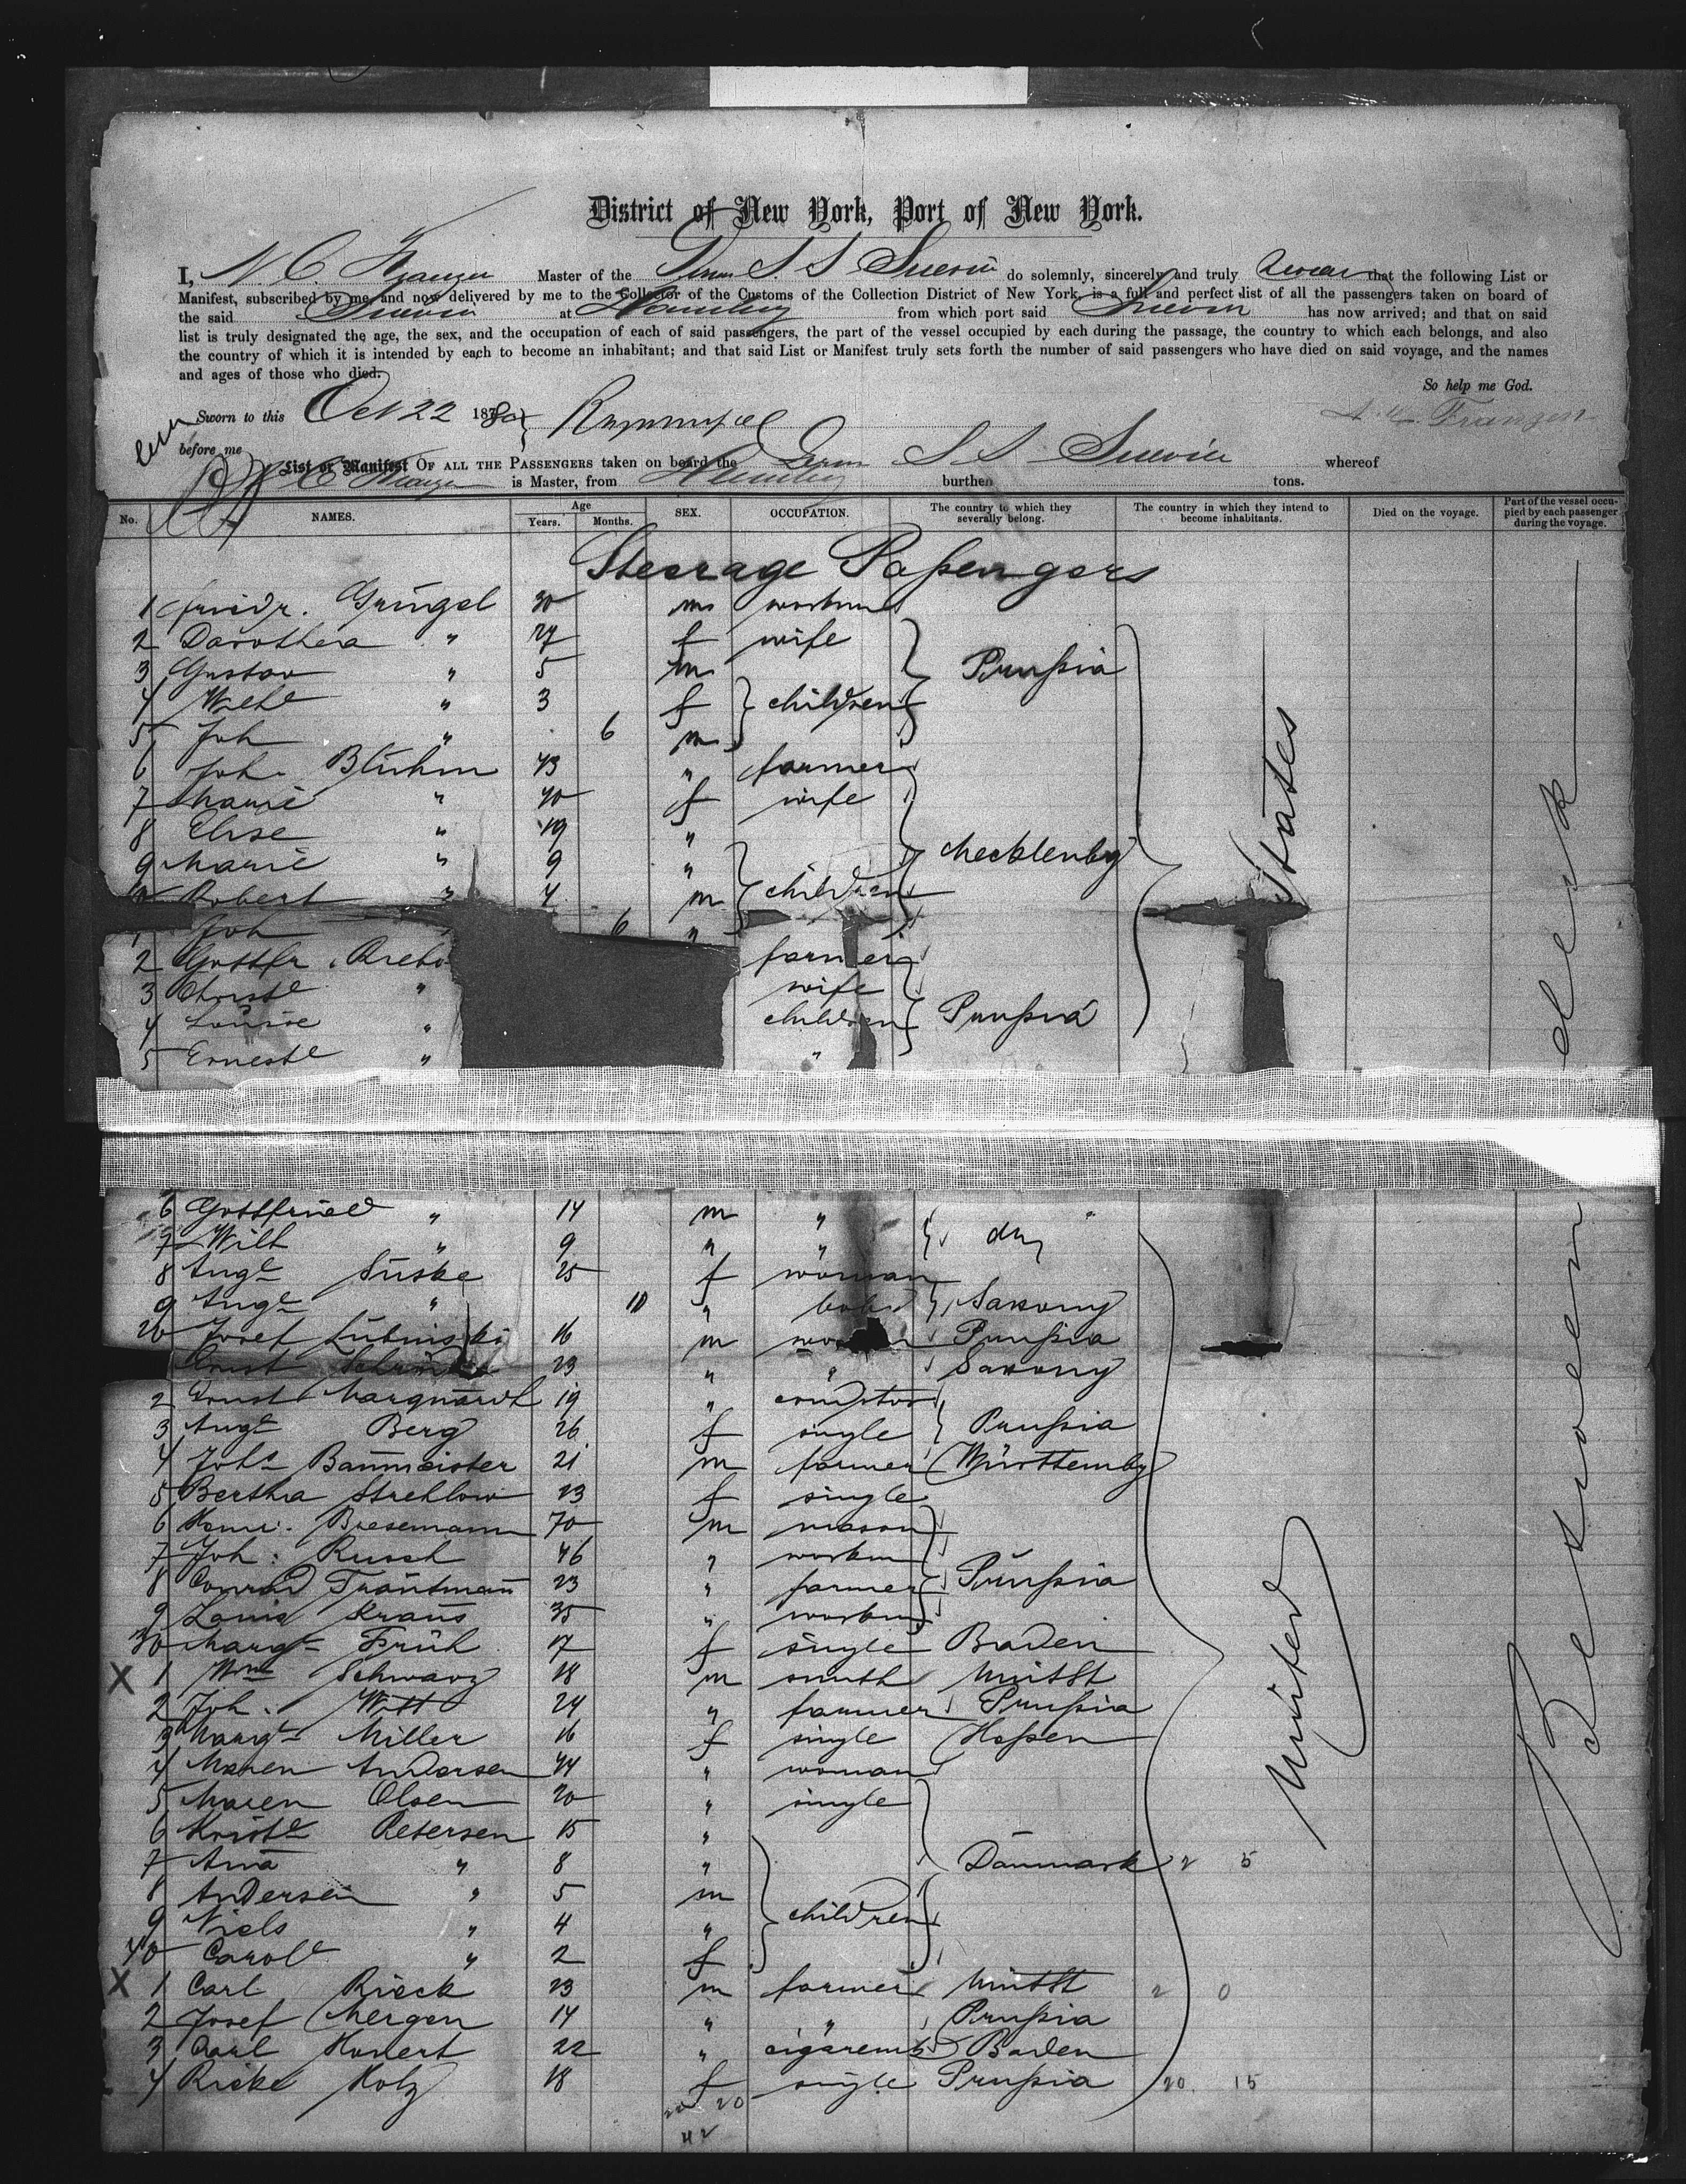 District of New York, Port of New York.
I, N. C. Franzen Master of the Germ S. S. Suevia do solemnly, sincerely and truly swear that the following List or
Manifest, subscribed by me, and now delivered by me to the Collector of the Customs of the Collection District of New York, is a full and perfect list of all the passengers taken on board of
the said Suevia at Hamburg from which port said Suevia has now arrived; and that on said
list is truly designated the age, the sex, and the occupation of each of said passengers, the part of the vessel occupied by each during the passage, the country to which each belongs, and also
the country of which it is intended by each to become an inhabitant; and that said List or Manifest truly sets forth the number of said passengers who have died on said voyage, and the names
and ages of those who died.
So help me God.
Sworn to this Oct 22 1880 Franzen
before me
List or Manifest OF ALL THE PASSENGERS taken on board the Germ S S Suevia whereof
N C Franzen is Master, from Hamburg burthen tons.
No. NAMES. Age Years. Months. SEX. OCCUPATION. The country to which they severally belong. The country in which they intend to become inhabitants. Died on the voyage. Part of the vessel occupied by each passenger during the voyage.
Steerage Passengers
1 Friedr. Grüngel 30 m workm
2 Dorothea " 27 f wife
3 Gustav " 5 m Prussia
4 Wilhe " 3 f children
5 Joh " 6 m
6 Joh. Blühm 43 " farmer
7 Marie " 40 f wife
8 Elise " 19 "
9 Marie " 9 " Mecklenbg
10 Robert " 4 m children
1 Joh 6 "
2 Gottfr. farmer
3 Christe " wife
4 Louise " children Prussia
5 Erneste " "
States
6 Gottfried " 14 m "
7 Wilh " 9 " " do
8 Auge Suske 25 f woman
9 Auge " 10 " baby Saxony
20 Josef Lubinski 16 m Prussia
Ernst 23 " " Saxony
2 Ernst Marquardt 19 "
3 Auge Berg 26 f single Prussia
4 Johs Baumeister 21 m farmer Württembg
5 Bertha Strehlow 23 f single
6 Heinr. Biesemann 70 m mason
7 Joh: Rusch 46 " workm
8 Conrad Trautmann 23 " farmer Prussia
9 Louis Kraus 35 " workm
30 Margt Früh 17 f single Baden
X 1 Wm Schwarz 18 m smith UnitSt
2 Joh. Witt 24 " farmer Prussia
3 Margt Miller 16 f single Hessen
4 Maren Andersen 44 " woman
5 Maren Olsen 20 " single
6 Kriste Petersen 15 "
7 Ana " 8 " Danmark 2 5
8 Andersen " 5 m
9 Niels " 4 " children
40 Carole " 2 f
X 1 Carl Rieck 23 m farmer UnitSt 2 0
2 Josef Mergen 14 " " Prussia
3 Carl Honert 22 " Baden
4 Rieke Holz 18 f single Prussia 20 15
20 20
42
United